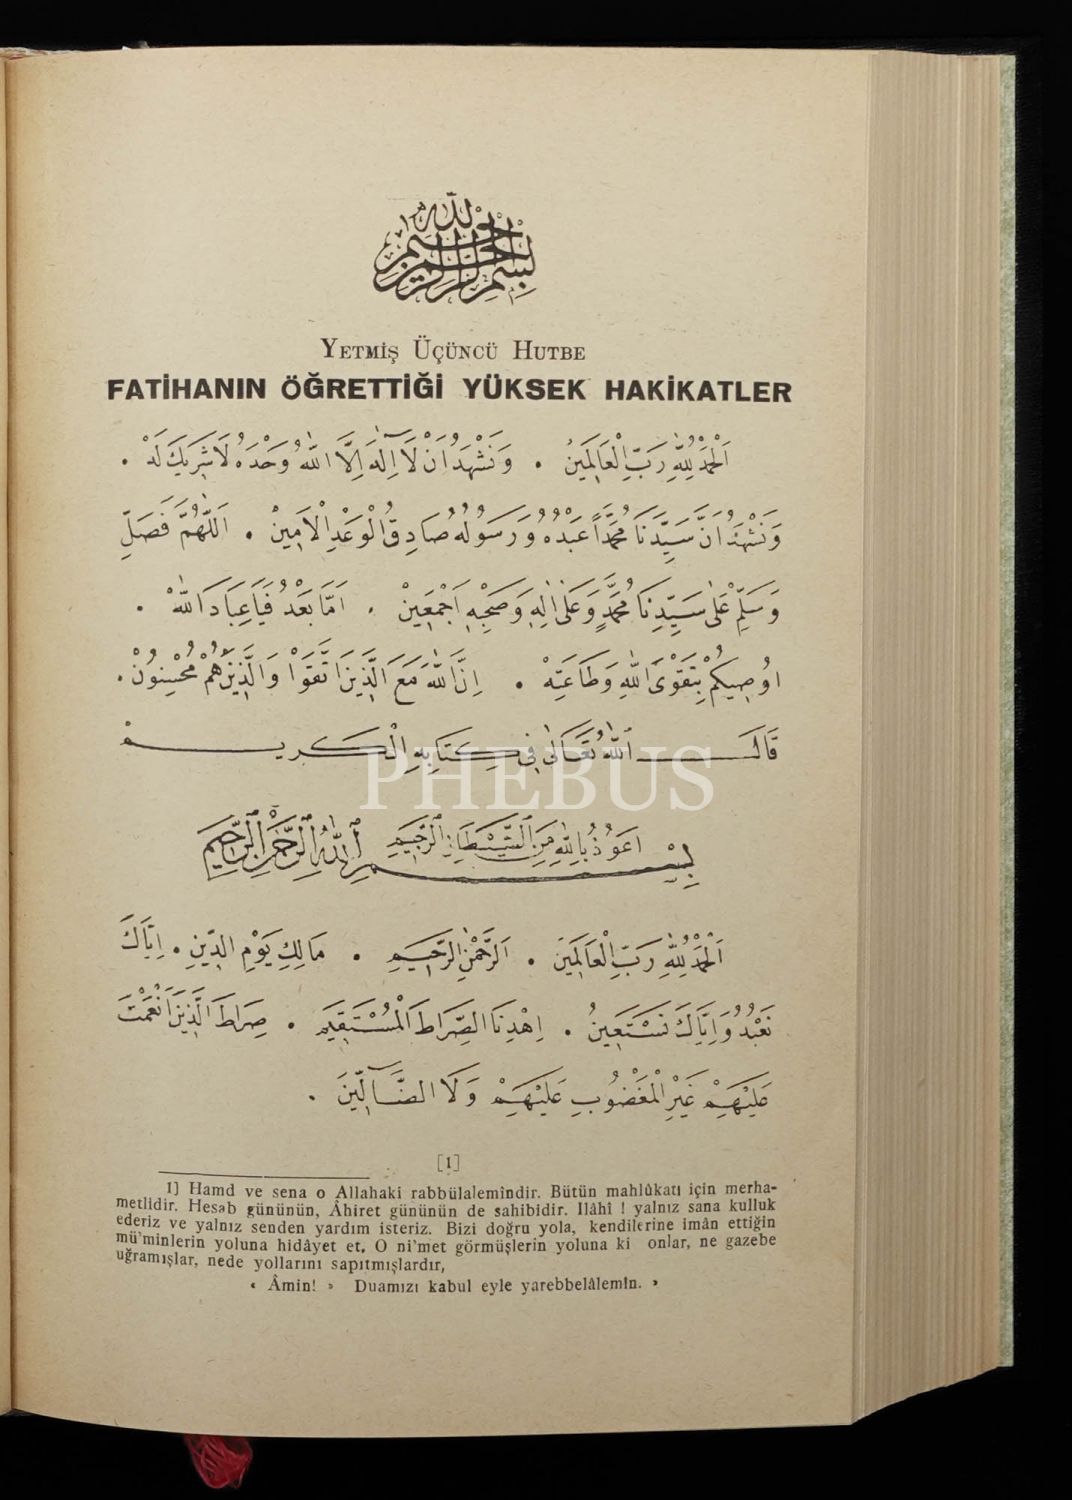 بسم الله الرحمن الرحيم
YETMİŞ ÜÇÜNCÜ HUTBE
FATİHANIN ÖĞRETTİĞİ YÜKSEK HAKİKATLER
اَلْحَمْدُ لِلّٰهِ رَبِّ الْعَالَمِينَ . وَنَشْهَدُ اَنْ لَا اِلٰهَ اِلَّا اللّٰهُ وَحْدَهُ لَا شَرِيكَ لَهْ .
وَنَشْهَدُ اَنَّ سَيِّدَنَا مُحَمَّداً عَبْدُهُ وَرَسُولُهُ صَادِقُ الْوَعْدِ الْاَمِينْ . اَللّٰهُمَّ فَصَلِّ
وَسَلِّمْ عَلٰى سَيِّدِنَا مُحَمَّدٍ وَعَلٰى اٰلِهِ وَصَحْبِهِ اَجْمَعِينْ . اَمَّا بَعْدُ فَيَا عِبَادَ اللّٰهْ .
اُوصِيكُمْ بِتَقْوَى اللّٰهِ وَطَاعَتِهْ . اِنَّ اللّٰهَ مَعَ الَّذِينَ اتَّقَوْا وَالَّذِينَ هُمْ مُحْسِنُونْ .
قَالَ اللّٰهُ تَعَالٰى فِى كِتَابِهِ الْكَرِيمْ
اَعُوذُ بِاللّٰهِ مِنَ الشَّيْطَانِ الرَّجِيمِ
بِسْمِ اللّٰهِ الرَّحْمٰنِ الرَّحِيمِ
اَلْحَمْدُ لِلّٰهِ رَبِّ الْعَالَمِينَ . اَلرَّحْمٰنِ الرَّحِيمِ . مَالِكِ يَوْمِ الدِّينِ . اِيَّاكَ
نَعْبُدُ وَاِيَّاكَ نَسْتَعِينُ . اِهْدِنَا الصِّرَاطَ الْمُسْتَقِيمَ . صِرَاطَ الَّذِينَ اَنْعَمْتَ
عَلَيْهِمْ غَيْرِ الْمَغْضُوبِ عَلَيْهِمْ وَلَا الضَّٓالِّينَ .
[1]
1] Hamd ve sena o Allahaki rabbülalemîndir. Bütün mahlûkatı için merha-
metlidir. Hesab gününün, Âhiret gününün de sahibidir. Ilâhî ! yalnız sana kulluk
ederiz ve yalnız senden yardım isteriz. Bizi doğru yola, kendilerine imân ettiğin
mü'minlerin yoluna hidâyet et, O ni'met görmüşlerin yoluna ki onlar, ne gazebe
uğramışlar, nede yollarını sapıtmışlardır,
« Âmin! » Duamızı kabul eyle yarebbelâlemîn. »
PHEBUS